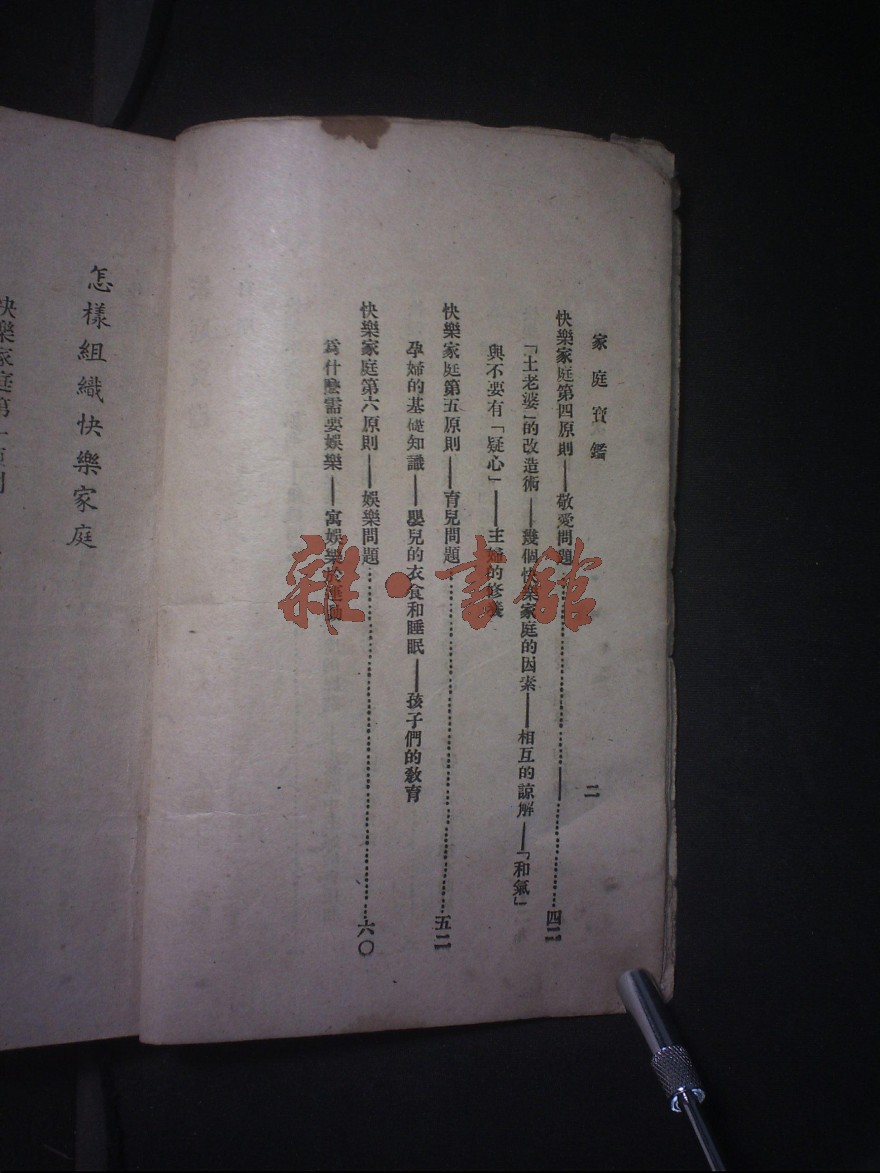 家庭寶鑑
二
快樂家庭第四原則——敬愛問題……………——……………四二
「土老婆」的改造術——幾個快樂家庭的因素——相互的諒解——「和氣」
與不要有「疑心」——主婦的修養
快樂家庭第五原則——育兒問題……………五二
孕婦的基礎知識——嬰兒的衣食和睡眠——孩子們的教育
快樂家庭第六原則——娛樂問題……………六〇
爲什麽需要娛樂——寓娛樂於運動
怎樣組織快樂家庭
快樂家庭第一原則
雜·書館